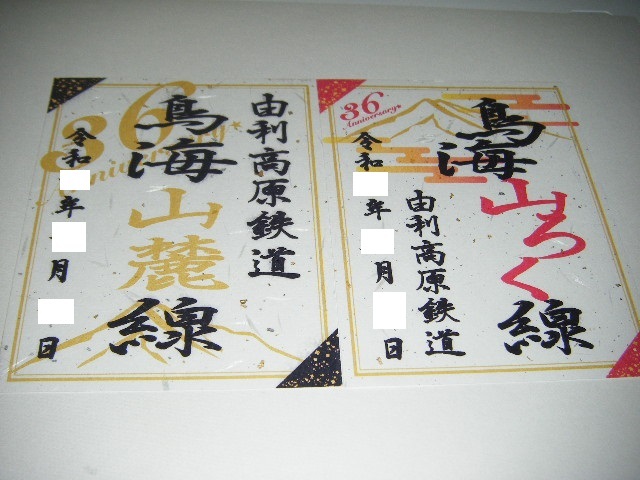 由利高原鉄道
鳥海山麓線
36
Anniversary
令和 年 月 日
36
Anniversary
鳥海山ろく線
由利高原鉄道
令和 年 月 日